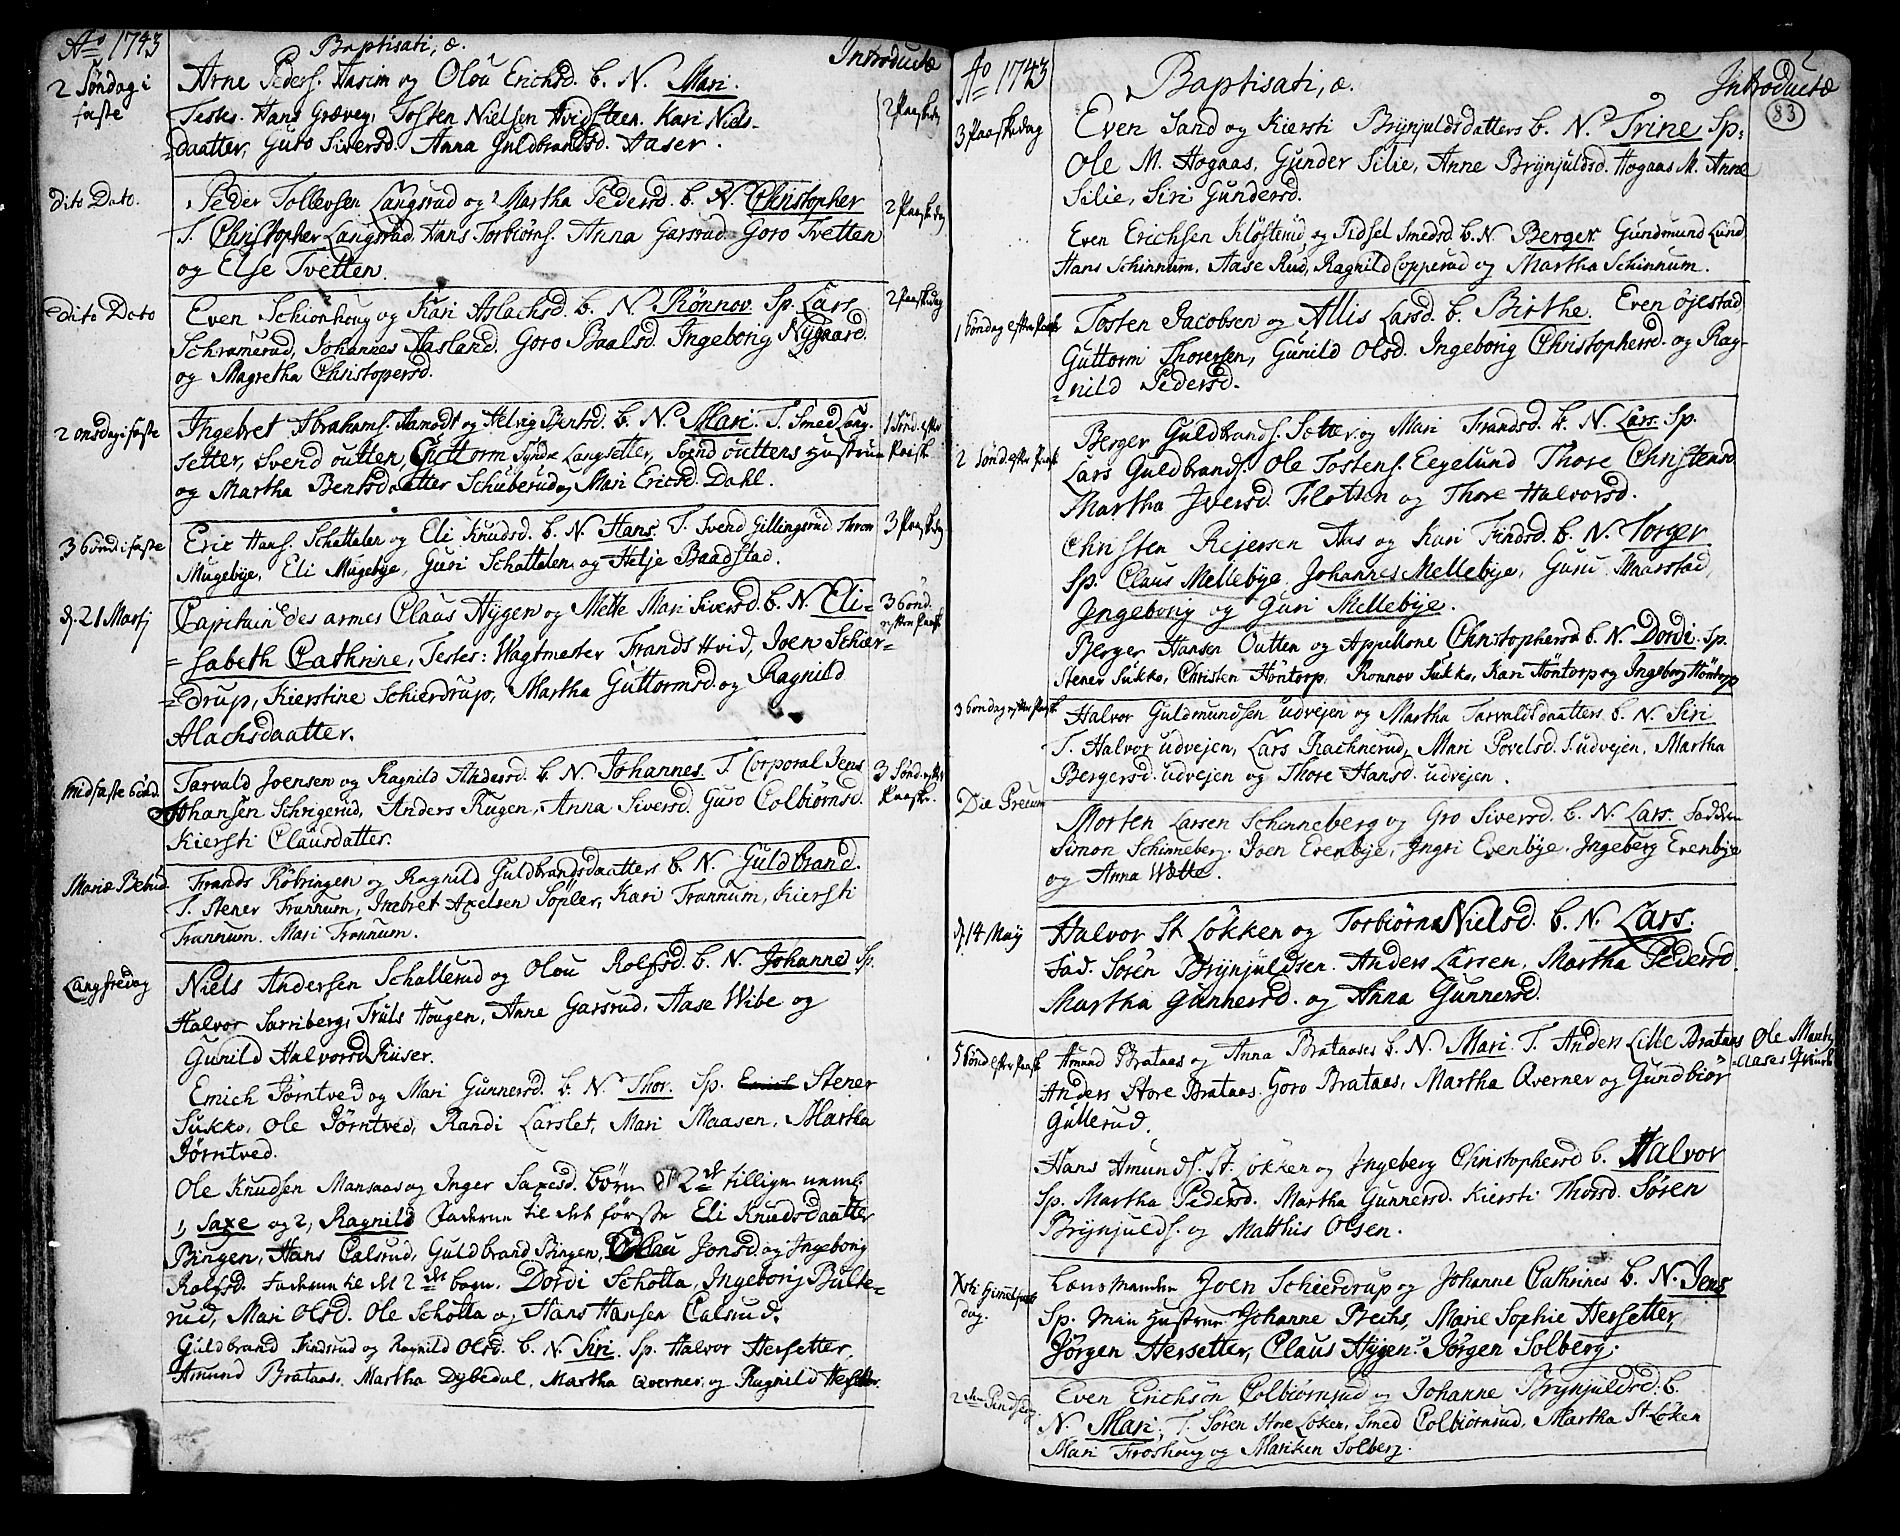 Aº 1743
Baptisati, æ.
Introductæ
2 Søndag i faste
Arne Peders. Aasim og Olou Erichsd. b. N. Mari.
Testes. Hans Grævey, Tosten Nielsen Hvidsteen. Kari Niels-
daatter, Guro Siversd. Anna Guldbrandsd. Aaser.
2 Paaskedag
dito Dato.
1 Peder Tollevsen Langsrud og 2 Martha Pedersd. b. N. Christopher
T. Christopher Langsrud, Hans Torbiørns. Anna Garsrud. Goro Tvetten
og Else Tvetten.
2 Paaskedag
dito Dato
Even Schionhoug og Kari Aslachsd. b. N. Rønnov. Sp. Lars
Schramerud, Johannes Aasland. Goro Baalsd. Ingeborig Nygaard.
og Magretha Christopersd.
2 Paaskedag
2 onsdag i faste
Ingebret Abrahams. Aamodt og Helvig Bentsd. b. N. Mari. T. Smed Lang-
setter, Svend outten, Guttorm Syndre Langsetter, Svend outtens Hustrue
og Martha Bentsdaatter Schuberud og Mari Ericsd. Dahl.
1 Sønd. efter Paask
3 Sønd i faste
Eric Hans. Schattalen og Eli Knudsd. b. N. Hans. T. Svend Gillingsrud Thron
Mugebye, Eli Mugebye, Guri Schattalen og Helje Baadstad.
3 Paaskedag
d. 21 Martj
Capitain des armes Claus Hygen og Mette Mari Siversd. b. N. Eli-
sabeth Cathrine, Testes: Wagtmester Frands Hvid, Joen Schier-
drup, Kierstine Schierdrup, Martha Guttormsd. og Ragnild
Alachsdaatter.
3 Sønd. efter Paask
Midfaste Sønd.
Tarvald Joensen og Ragnild Andersd. b. N. Johannes. T. Corporal Jens
Johansen Schrigerud, Anders Rugen, Anna Siversd. Guro Colbiørnsd.
Kiersti Clausdatter.
3 Sønd. efter Paaske.
Mariæ Bebud.
Frands Røbringen og Ragnild Guldbrandsdaatters b. N. Guldbrand.
T. Stener Frannum, Inebret Axelsen Søpler, Kari Frannum, Kiersti
Frannum. Mari Frannum.
Langfredag
Niels Andersen Schallerud og Olou Rolfsd. b. N. Johanne Sp.
Halvor Sarriberg, Truls Hougen, Anne Garsrud, Aase Wibe og
Gunild Halvorsd Riiser.
Emich Jørntved og Mari Gunnersd. b. N. Thor. Sp. Stener
Sukko, Ole Jørntved, Randi Larslet, Mari Maasen, Martha
Jørntved.
Ole Knudsen Mansaas og Inger Saxesd. børn 2de tillige neml:
1, Saxe og 2, Ragnild Fadderne til det første Eli Knudsdaatter
Bingen, Hans Calsrud, Guldbrand Bingen, Olau Jonsd. og Ingeborig
Rolfsd. Fadderne til det 2det bøgn. Dordi Schotta, Ingeborig Bulte-
rud, Mari Olsd. Ole Schotta og Hans Hansen Calsrud.
Guldbrand Findsrud og Ragnild Olsd. b. N. Siri. Sp. Halvor Hersetter,
Amund Brataas. Martha Dybedal, Martha Qverner, og Ragnild Hersetter.
Aº 1743
Baptisati, æ.
Introductæ
83
3 Paaskedag
Even Sand og Kiersti Brynjuldsdatters b. N. Trine Sp:
Ole M. Hogaas, Gunder Silie, Anne Brynjuldsd. Hogaas M. Anne
Silie, Siri Gundersd.
Even Erichsen Kløfterud og Sidsel Smedsd. b. N Berger Gundmund Lund,
Hans Schinnum. Aase Rud, Ragnild Copperud og Martha Schinnum.
1 Søndag efter Paask
Tosten Jacobsen og Allis Larsd. b. Birthe. Even øjestad
Guttorm Thoresen, Gunild Olsd. Ingeborig Christophersd. og Rag-
nild Pedersd.
2 Sønd. efter Paask
Berger Guldbrands. Sotter og Mari Frandsd. b. N. Lars. Sp.
Lars Guldbrands. Ole Tostens. Eegelund Thore Christensd
Martha Iversd. Flotten og Thore Halvorsd.
Christen Rejersen Aas og Kari Findsd. b. N. Torger
Sp. Claus Mellebye, Johannes Mellebye, Guru Maarstad,
Ingeborig og Guri Mellebye.
Berger Hansen Outten og Appellone Christophersd b. N. Dordi. Sp.
Stener Sukko, Christen Høntorp. Ronnov Sukko, Kari Høntorp og Ingeborg Høntorp
3 Søndag efter Paask.
Halvor Guldmundsen udvejen og Martha Tarvaldsdaatters b. N. Siri
T. Halvor udvejen, Lars Rachnerud, Mari Povelsd. S. udvejen, Martha
Bergersd. udvejen og Thore Hansd. udvejen.
Die Precum
Morten Larsen Schinneberg og Gro Siversd. b. N. Lars. Fadder
Simon Schinneberg. Joen Evenbye, Ingri Evenbye. Ingeberg Evenbye
og Anna Wætte.
d. 14 May
Halvor St. Løkken og Torbiørna Nielsd. b. N. Lars.
Fad. Søren Brynjuldsen. Anders Larsen, Martha Pedersd.
Martha Gunnersd. og Anna Gunnersd.
5 Sønd efter Paask
Amund Brataas og Anna Brataases b. N. Mari. T. Anders Lille Brataas Ole
Anders Store Brataas. Goro Brataas, Martha Qverner og Gundbiør
Gullerud.
Hans Amunds. St. Løkken og Ingeberg Christophersd b. Halvor
Sp. Martha Pedersd. Martha Gunnersd. Kiersti Thorsd. Søren
Brynjulds. og Matthis Olsen.
Xsti Himelfarts dag.
Lensmanden Joen Schierdrup og Johanne Cathrines b. N. Jens
Sp. Min Hustrue Johanne Brechs, Marie Sophie Hersetter,
Jørgen Hersetter, Claus Hygen. Jørgen Solberg.
2den Pindsedag
Even Erichsøn Colbiørnsrud og Johanne Brynjuldsd. b.
N. Mari, T. Søren Store Løken, Smed Colbiørnrud, Martha St Løken
Mari Froshoug og Mariken Solberg.